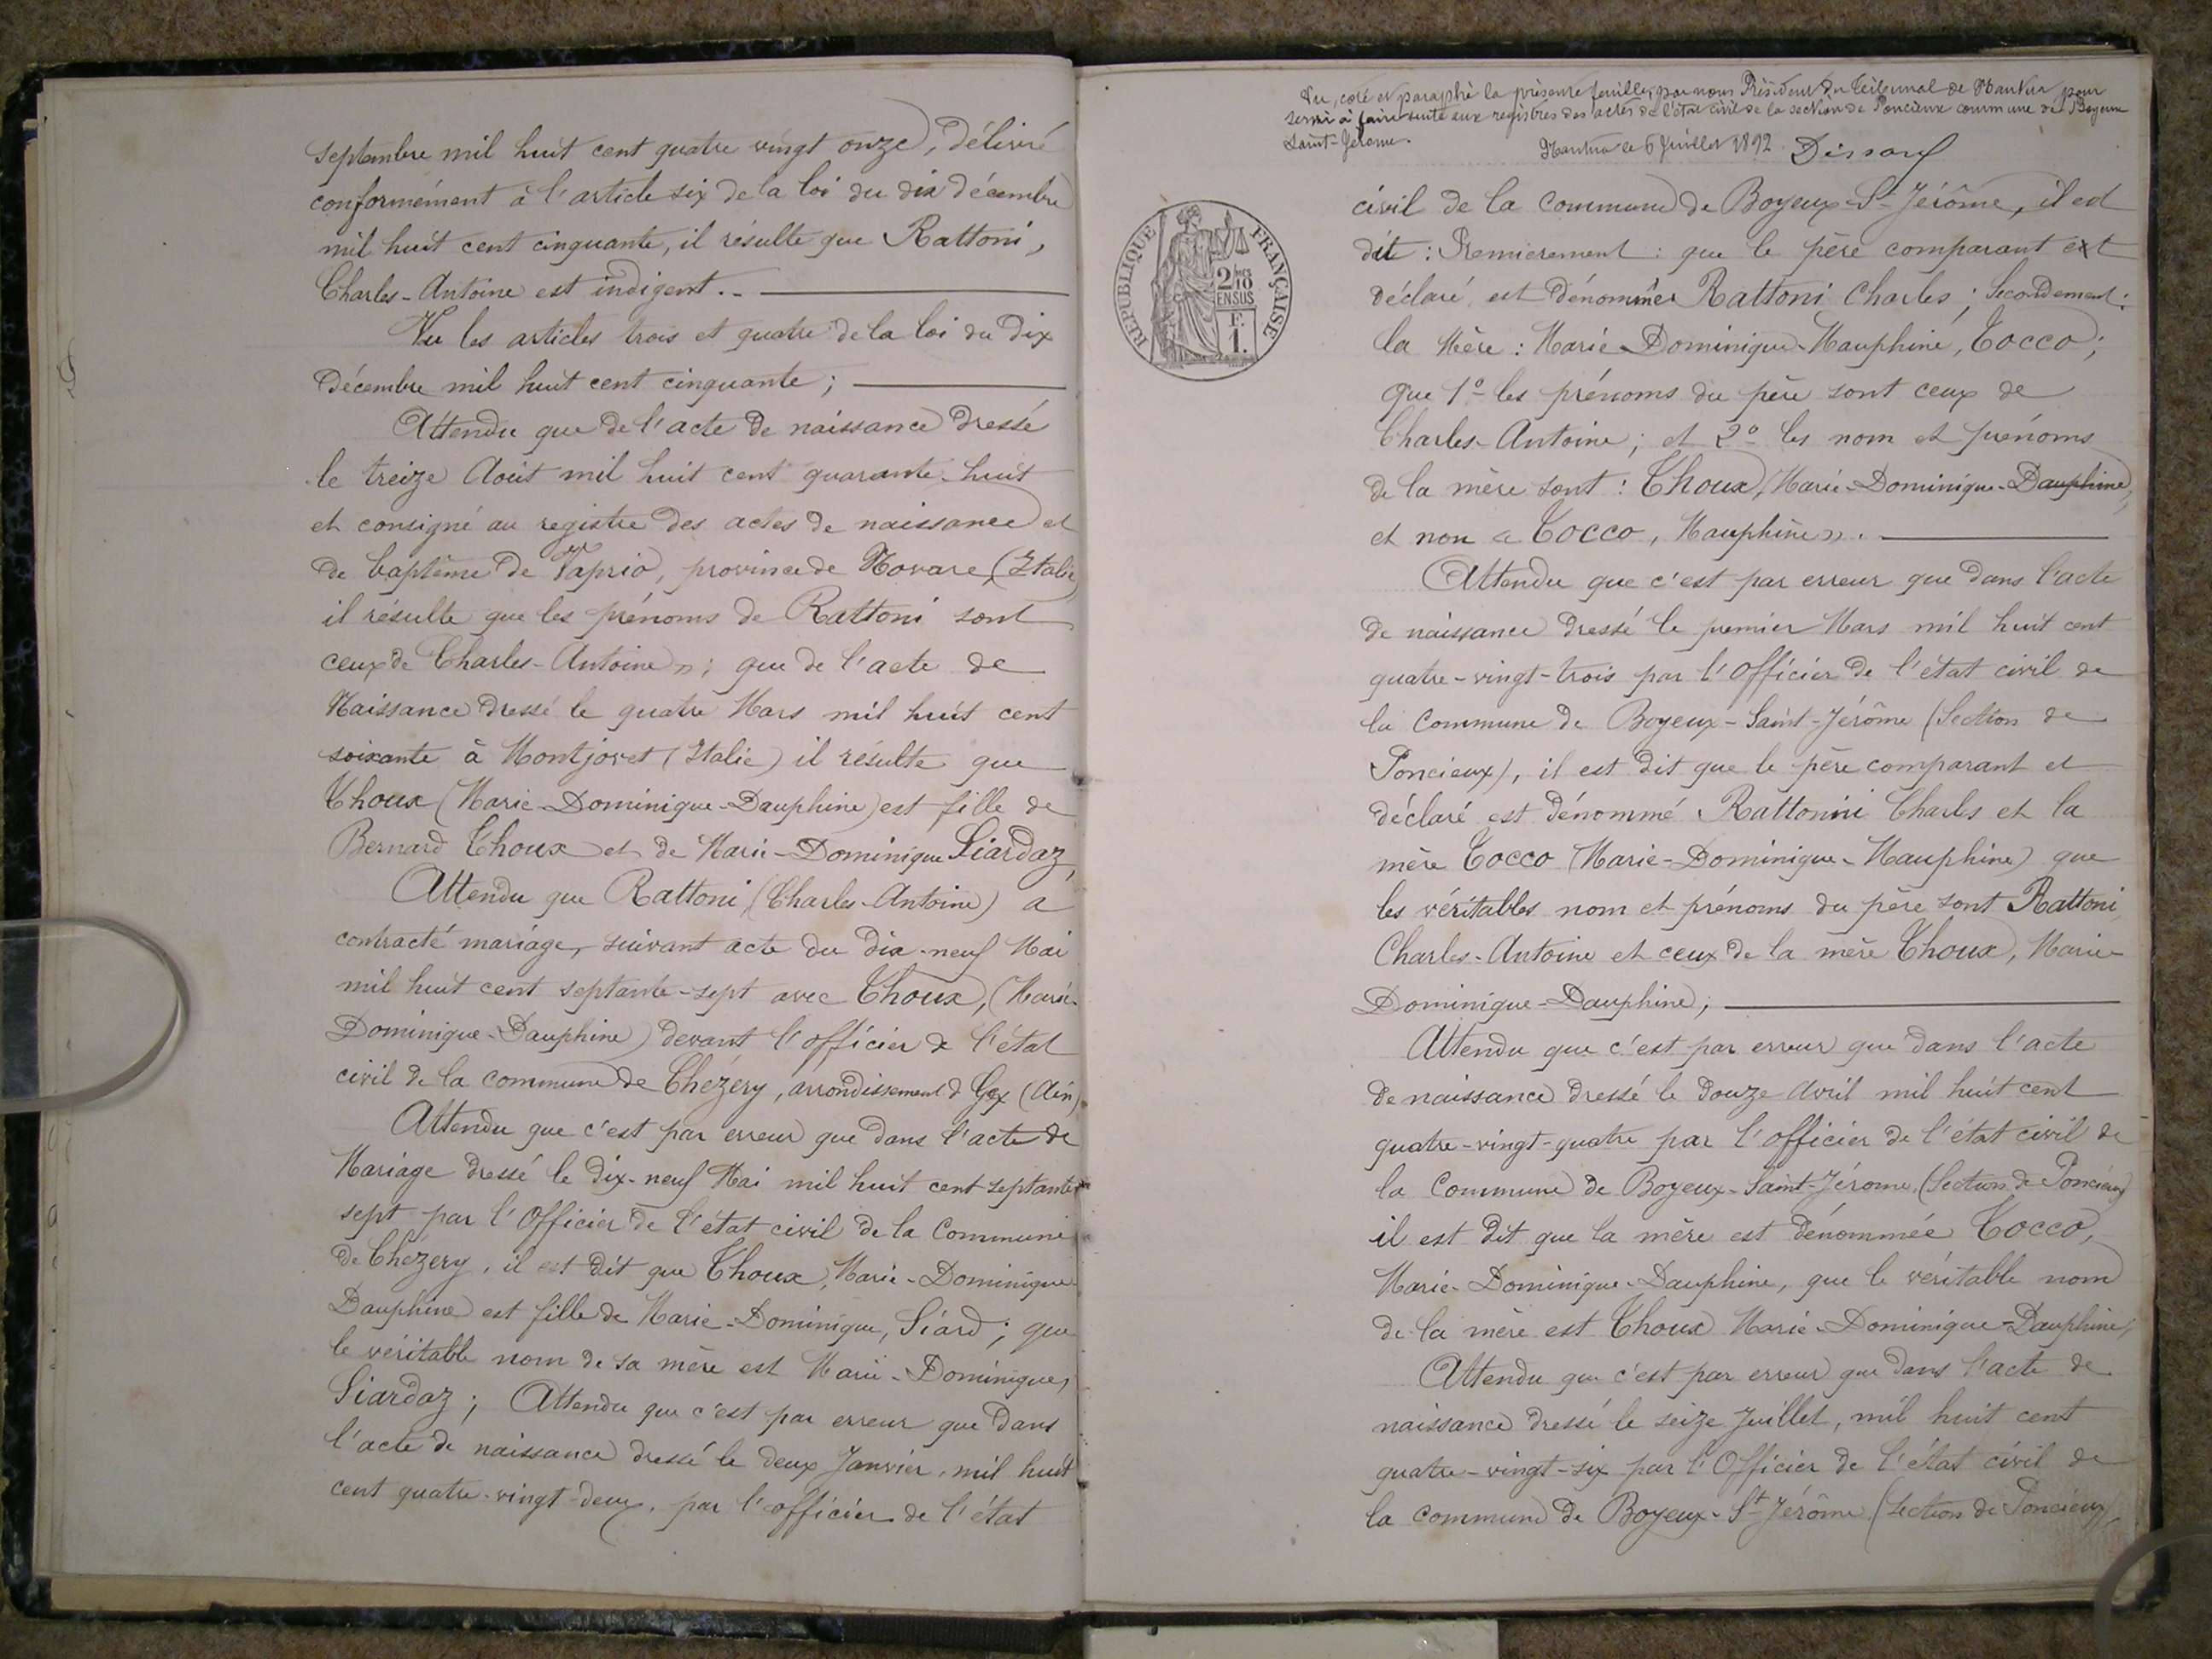 septembre mil huit cent quatre vingt onze, délivré
conformément à l'article six de la loi du dix décembre
mil huit cent cinquante, il résulte que Rattoni,
Charles-Antoine est indigent.-
Vu les articles trois et quatre de la loi du dix
décembre mil huit cent cinquante ;
Attendu que de l'acte de naissance dressé
le treize Août mil huit cent quarante-huit
et consigné au registre des actes de naissance et
de baptême de Vaprio, province de Novare (Italie)
il résulte que les prénoms de Rattoni sont
ceux de Charles-Antoine » ; que de l'acte de
Naissance dressé le quatre Mars mil huit cent
soixante à Montjovet (Italie) il résulte que
Thoux (Marie-Dominique-Dauphine) est fille de
Bernard Thoux et de Marie-Dominique Siardaz,
Attendu que Rattoni, (Charles-Antoine) a
contracté mariage, suivant acte du dix-neuf Mai
mil huit cent septante-sept avec Thoux, (Marie-
Dominique-Dauphine) devant l'officier de l'état
civil de la commune de Chézery, arrondissement d Gex (Ain).
Attendu que c'est par erreur que dans l'acte de
Mariage dressé le dix-neuf Mai mil huit cent septante
sept par l'Officier de l'état civil de la Commune
de Chézery, il est dit que Thoux, Marie-Dominique
Dauphine est fille de Marie-Dominique, Siard ; que
le véritable nom de sa mère est Marie-Dominique,
Siardaz ; Attendu que c'est par erreur que dans
l'acte de naissance dressé le deux Janvier, mil huit
cent quatre-vingt-deux, par l'officier de l'état
Vu, coté et paraphé la présente feuille, par nous Président du Tribunal de Nantua pour
servir à faire suite aux registres des actes de l'état civil de la section de Poncieux commune de Boyeux
Saint-Jérome.
Nantua le 6 Juillet 1892
REPUBLIQUE FRANÇAISE
2/10
EN SUS
F.
1.
civil de la Commune de Boyeux-St-Jérôme, il est
dit : Premierement : que le père comparant ext
déclaré est dénommé Rattoni Charles ; Secondement :
la Mère : Marie-Dominique-Mauphine, Tocco ;
que 1º- les prénoms du père sont ceux de
Charles-Antoine ; et 2º- les nom et prénoms
de la mère sont : Thoux, Marie-Dominique-Dauphine,
et non « Tocco, Mauphine ».
Attendu que c'est par erreur que dans l'acte
de naissance dressé le premier Mars mil huit cent
quatre-vingt-trois par l'Officier de l'état civil de
la Commune de Boyeux-Saint-Jérôme (Section de
Poncieux), il est dit que le père comparant et
déclaré est dénommé Rattonini Charles et la
mère Tocco (Marie-Dominique-Mauphine) que
les véritables nom et prénoms du père sont Rattoni
Charles-Antoine et ceux de la mère Thoux, Marie-
Dominique-Dauphine ;
Attendu que c'est par erreur que dans l'acte
de naissance dressé le douze Avril mil huit cent
quatre-vingt-quatre par l'officier de l'état civil de
la Commune de Boyeux-Saint-Jérome (Section de Poncieux)
il est dit que la mère est dénommée Tocco,
Marie-Dominique-Dauphine, que le véritable nom
de la mère est Thoux Marie-Dominique-Dauphine ;
Attendu que c'est par erreur que dans l'acte de
naissance dressé le seize Juillet, mil huit cent
quatre-vingt-six par l'Officier de l'état civil de
la commune de Boyeux-St-Jérôme (Section de Poncieux)